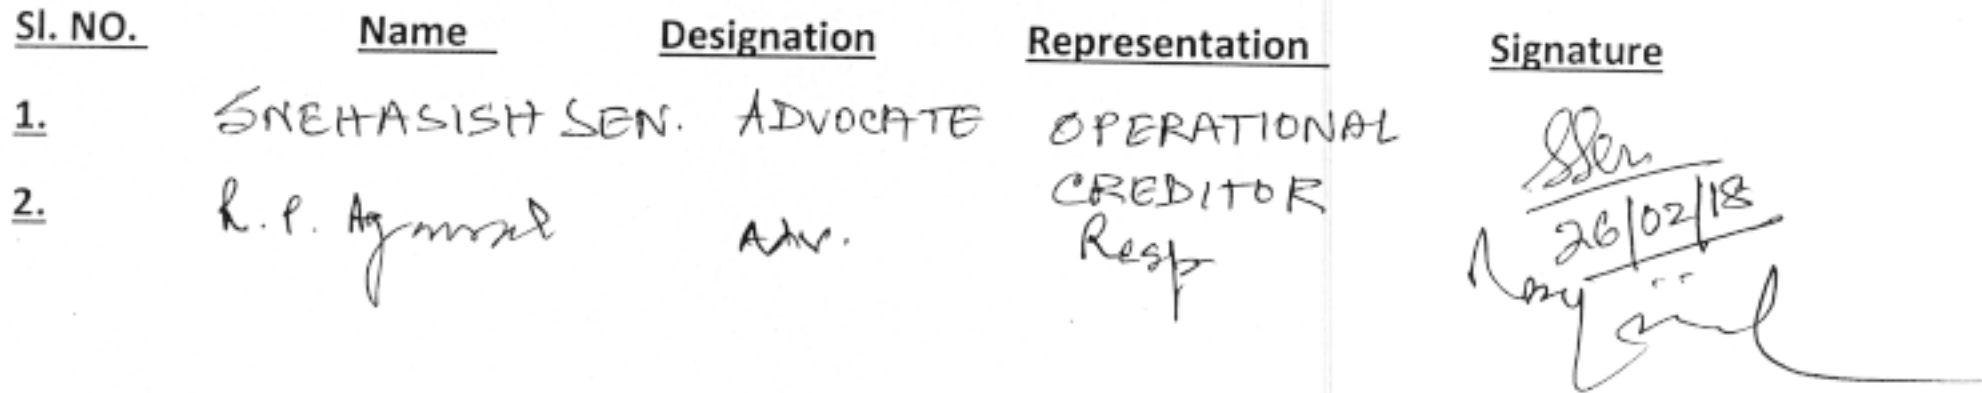 Sl. NO. Name Designation Representation Signature
1. SNEHASISH SEN. ADVOCATE OPERATIONAL SSen
CREDITOR 26/02/18
2. R. P. Agarwal Adv. Resp